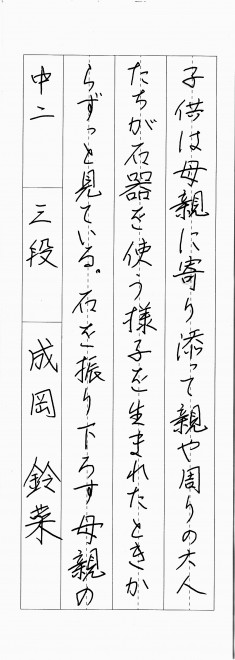 子供は母親に寄り添って親や周りの大人
たちが石器を使う様子を生まれたときか
らずっと見ている。石を振り下ろす母親の
中二 三段 成岡 鈴菜